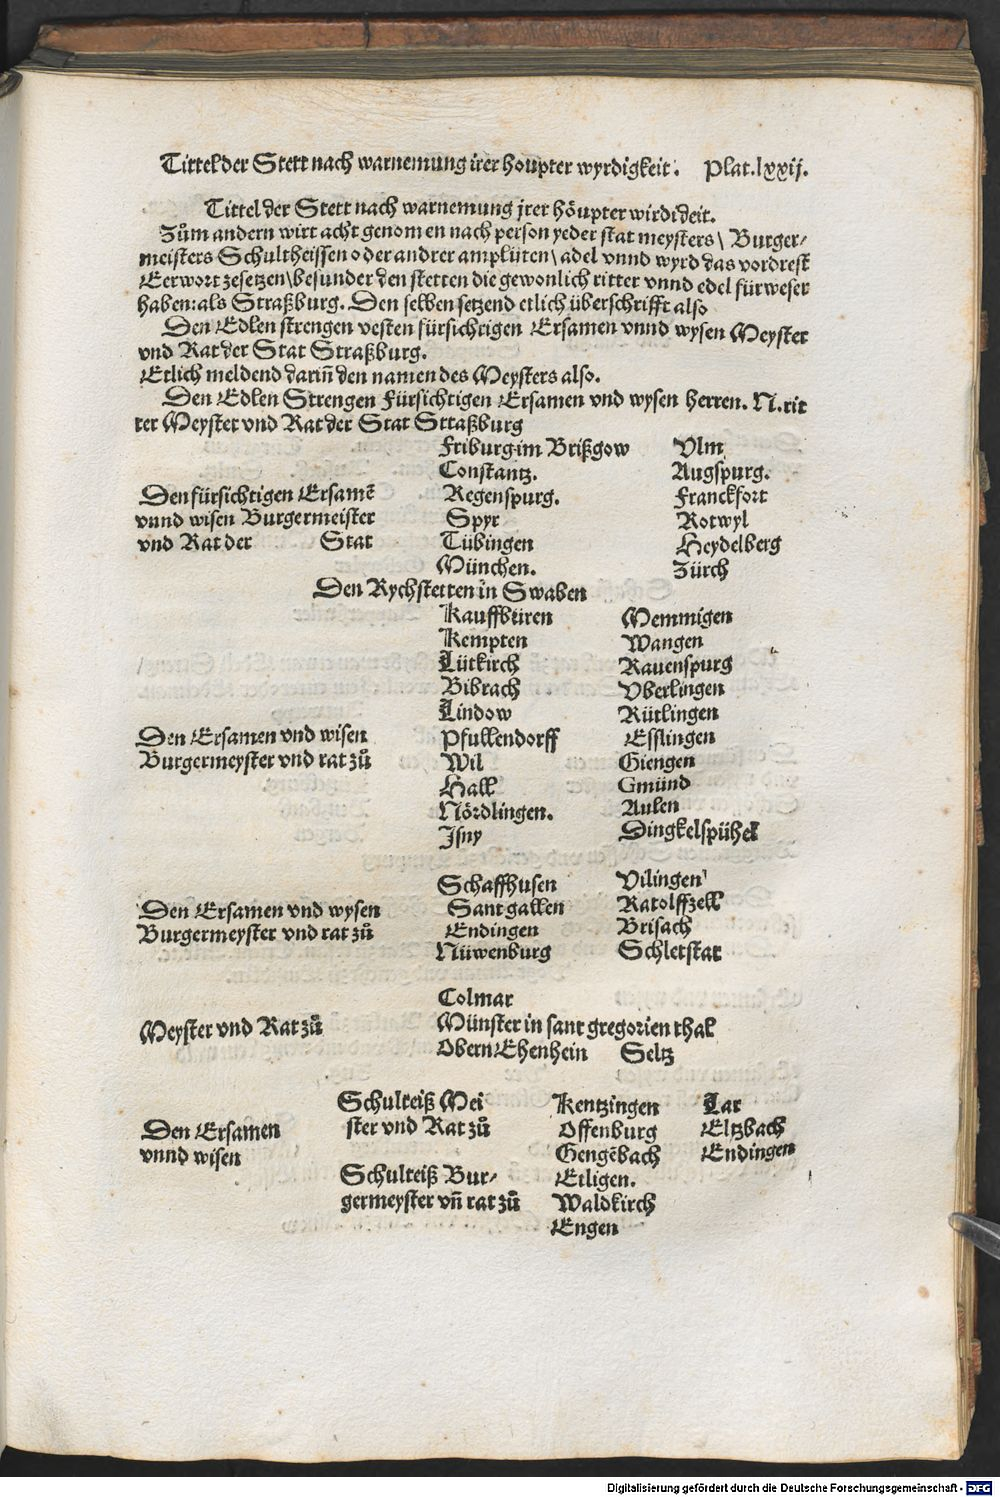 Tittel der Stett nach warnemung irer houpter wyrdigkeit. Plat. lxxij.
Tittel der Stett nach warnemung jrer höupter wirdideit.
Zům andern wirt acht genomen nach person yeder stat meysters \ Burger/
meisters Schultheissen oder andrer amplüten \ adel vnnd wyrd das vordrest
Eerwort zesetzen \ besunder den stetten die gewonlich ritter vnnd edel fürweser
haben: als Straßburg. Den selben setzend etlich überschrifft also
Den Edlen strengen vesten fürsichtigen Ersamen vnnd wysen Meyster
vnd Rat der Stat Straßburg.
Etlich meldend darin̄ den namen des Meysters also.
Den Edlen Strengen Fürsichtigen Ersamen vnd wysen herren. N. rit
ter Meyster vnd Rat der Stat Strraßburg
Friburg im Brißgow Vlm
Constantz. Augspurg.
Den fürsichtigen Ersamē Regenspurg. Franckfort
vnnd wisen Burgermeister Spyr Rotwyl
vnd Rat der Stat Tübingen Heydelberg
München. Zürch
Den Rychstetten in Swaben
Kauffbüren Memmigen
Kempten Wangen
Lütkirch Rauenspurg
Bibrach Vberlingen
Lindow Rütlingen
Den Ersamen vnd wisen Pfullendorff Esslingen
Burgermeyster vnd rat zů Wil Giengen
Hall Gmünd
Nördlingen. Aulen
Jsny Dingkelspühel
Schaffhusen Vilingen
Den Ersamen vnd wysen Sant gallen Ratolffzell
Burgermeyster vnd rat zů Endingen Brisach
Nüwenburg Schletstat
Colmar
Meyster vnd Rat zů Münster in sant gregorien thal
Obern Ehenhein Seltz
Schulteiß Mei Kentzingen Lar
Den Ersamen ster vnd Rat zů Offenburg Eltzbach
vnnd wisen Gengēbach Endingen
Schulteiß Bur- Etligen.
germeyster vn̄ rat zů Waldkirch
Engen
Digitalisierung gefördert durch die Deutsche Forschungsgemeinschaft - DFG